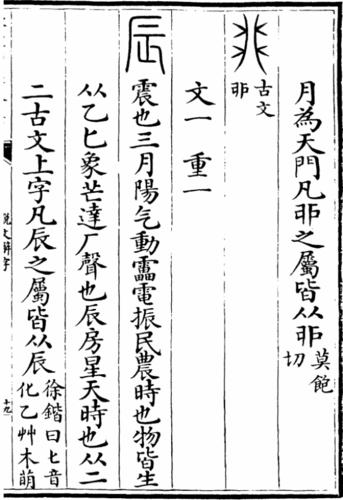 月為天門凡卯之屬皆从卯 莫飽
切
古文
卯
文一 重一
辰 震也三月陽气動靁電振民農時也物皆生
从乙匕象芒達厂聲也辰房星天時也从二
二古文上字凡辰之屬皆从辰 徐鍇曰匕音
化乙艸木萌